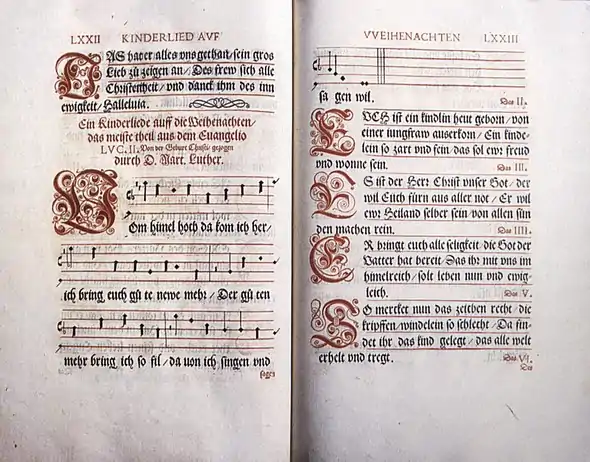 LXXII KINDERLIED AVF
DAS hat er alles vns gethan / sein gros
Lieb zů zeigen an / Des frew sich alle
Christenheit / vnd danck ihm des inn
ewigkeit / Halleluia.
Ein Kinderliede auff die Weihenachten /
das meiste theil aus dem Euangelio
LVC. II. Von der Geburt Christi / gezogen
durch D. Mart. Luther.
VOm himel hoch da kom ich her /
ich bring euch gů te newe mehr / Der gů ten
mehr bring ich so fil / da von ich singen vnd
sagen
VVEIHENACHTEN LXXIII
sa gen wil.
Das II.
EVCH ist ein kindlin heut geborn / von
einer iungfraw auserkorn / Ein kinde-
lein so zart vnd fein / das sol ewr freud
vnd wonne sein.
Das III.
ES ist der Herr Christ vnser Got / der
wil Euch fürn aus aller not / Er wil
ewr Heiland selber sein von allen sün
den machen rein.
Das IIII.
ER bringt euch alle seligkeit die Got der
Vatter hat bereit / Das ihr mit vns im
himelreich / solt leben nun vnd ewig-
leich.
Das V.
SO mercket nun das zeichen recht / die
kripffen / windelein so schlecht / Da fin-
det ihr das kind gelegt / das alle welt
erhelt vnd tregt.
Das VI.
Des